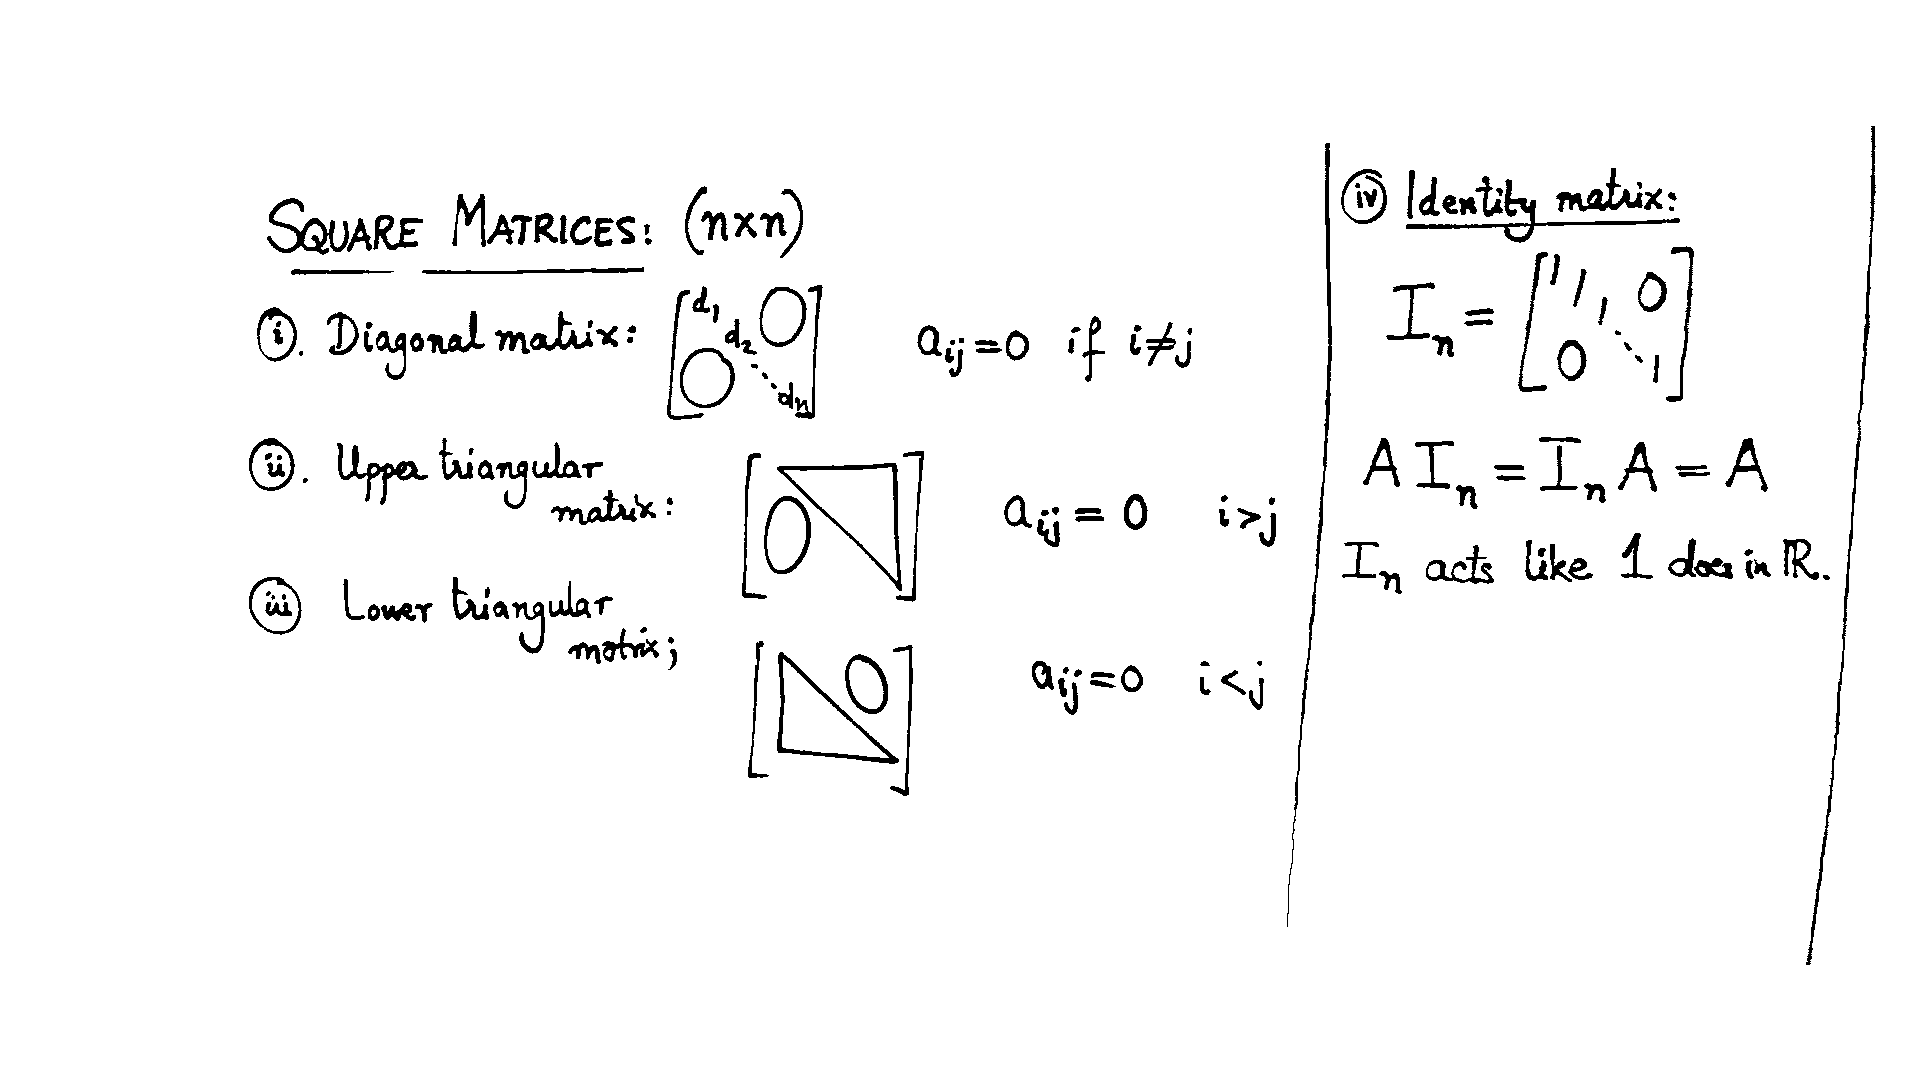 SQUARE MATRICES: (n×n)
(i). Diagonal matrix: [d₁ d₂ ⋱ dₙ 0 0] aᵢⱼ=0 if i≠j
(ii). Upper triangular
matrix: [0] aᵢⱼ = 0 i>j
(iii) Lower triangular
motrix; [0] aᵢⱼ=0 i<j
(iv) Identity matrix:
Iₙ = [1 1 1 ⋱ 1 0 0]
A Iₙ = Iₙ A = A
Iₙ acts like 1 does in ℝ.